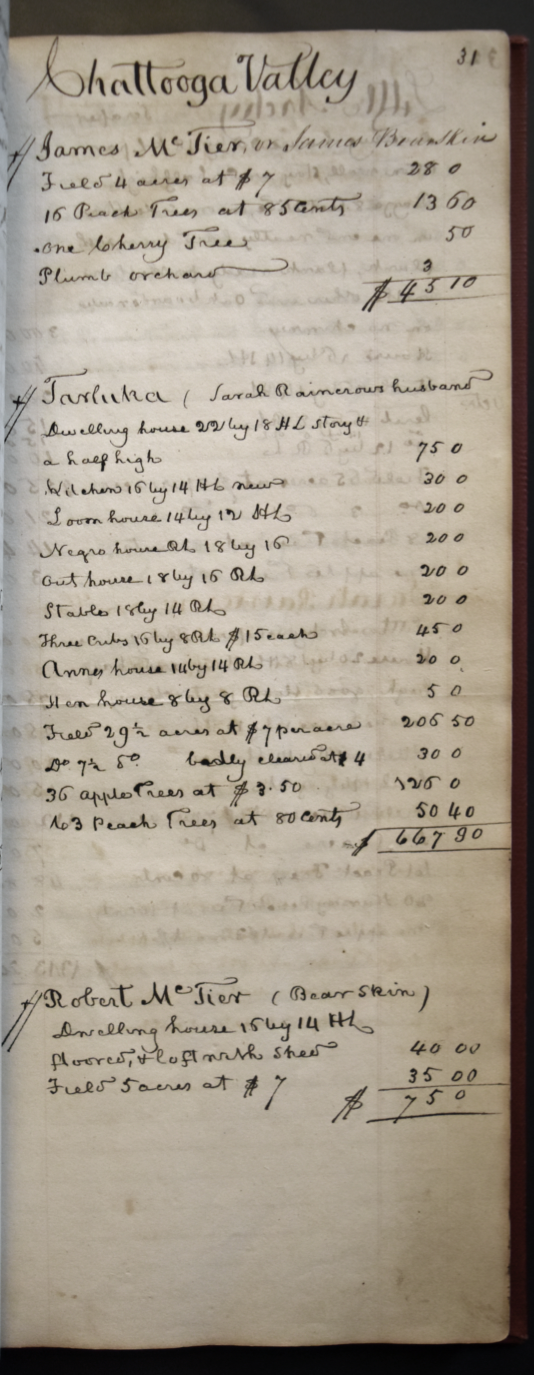 31
Chattooga Valley
James McTier, or James Bearskin
Field 4 acres at $7 28 0
16 Peach Trees at 85 Cents 13 60
one Cherry Tree 50
Plumb orchard 3
$ 45 10
Tarluka ( Sarah Raincrows husband
Dwelling house 22 by 18 HL story &
a half high 75 0
Kitchen 16 by 14 HL new 30 0
Loom house 14 by 12 HL 20 0
Negro house RL 18 by 16 20 0
out house 18 by 16 RL 20 0
Stable 18 by 14 RL 20 0
Three Cribs 16 by 8 RL $15 each 45 0
Annes house 14 by 14 RL 20 0
Hen house 8 by 8 RL 5 0
Field 29½ acres at $7 per acre 206 50
Do 7½ do. badly cleared at $4 30 0
36 apple Trees at $3.50 126 0
63 Peach Trees at 80 Cents 50 40
$ 667 90
Robert McTier ( Bear Skin )
Dwelling house 16 by 14 HL
floored, & loft with shed 40 00
Field 5 acres at $7 35 00
$ 75 0